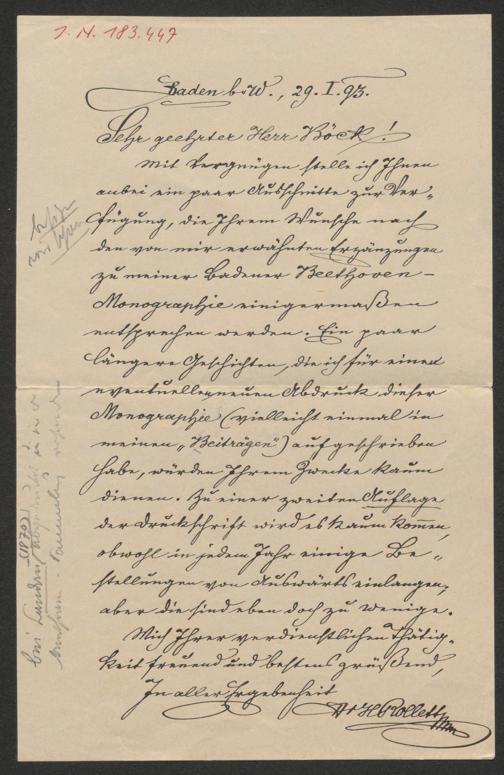 J. N. 183.447
Baden b. W., 29. I. 93.
Sehr geehrter Herr Böck!
Mit Vergnügen stelle ich Ihnen
anbei ein paar Ausschnitte zur Ver-
fügung, die Ihrem Wunsche nach
den von mir erwähnten Ergänzungen
zu meiner Badener Beethoven-
Monographie einigermaßen
entsprechen werden. Ein paar
längere Geschichten, die ich für einen
eventuellen neuen Abdruck dieser
Monographie (vielleicht einmal in
meinen „Beiträgen") aufgeschrieben
habe, würden Ihrem Zwecke kaum
dienen. Zu einer zweiten Auflage
der Druckschrift wird es kaum kommen,
obwohl in jedem Jahr einige Be-
stellungen von Auswärts einlangen;
aber die sind eben doch zu wenige.
Mich Ihrer verdienstlichen Thätig-
keit freuend und bestens grüßend,
In aller Ergebenheit
Dr H Rollett
(1870)